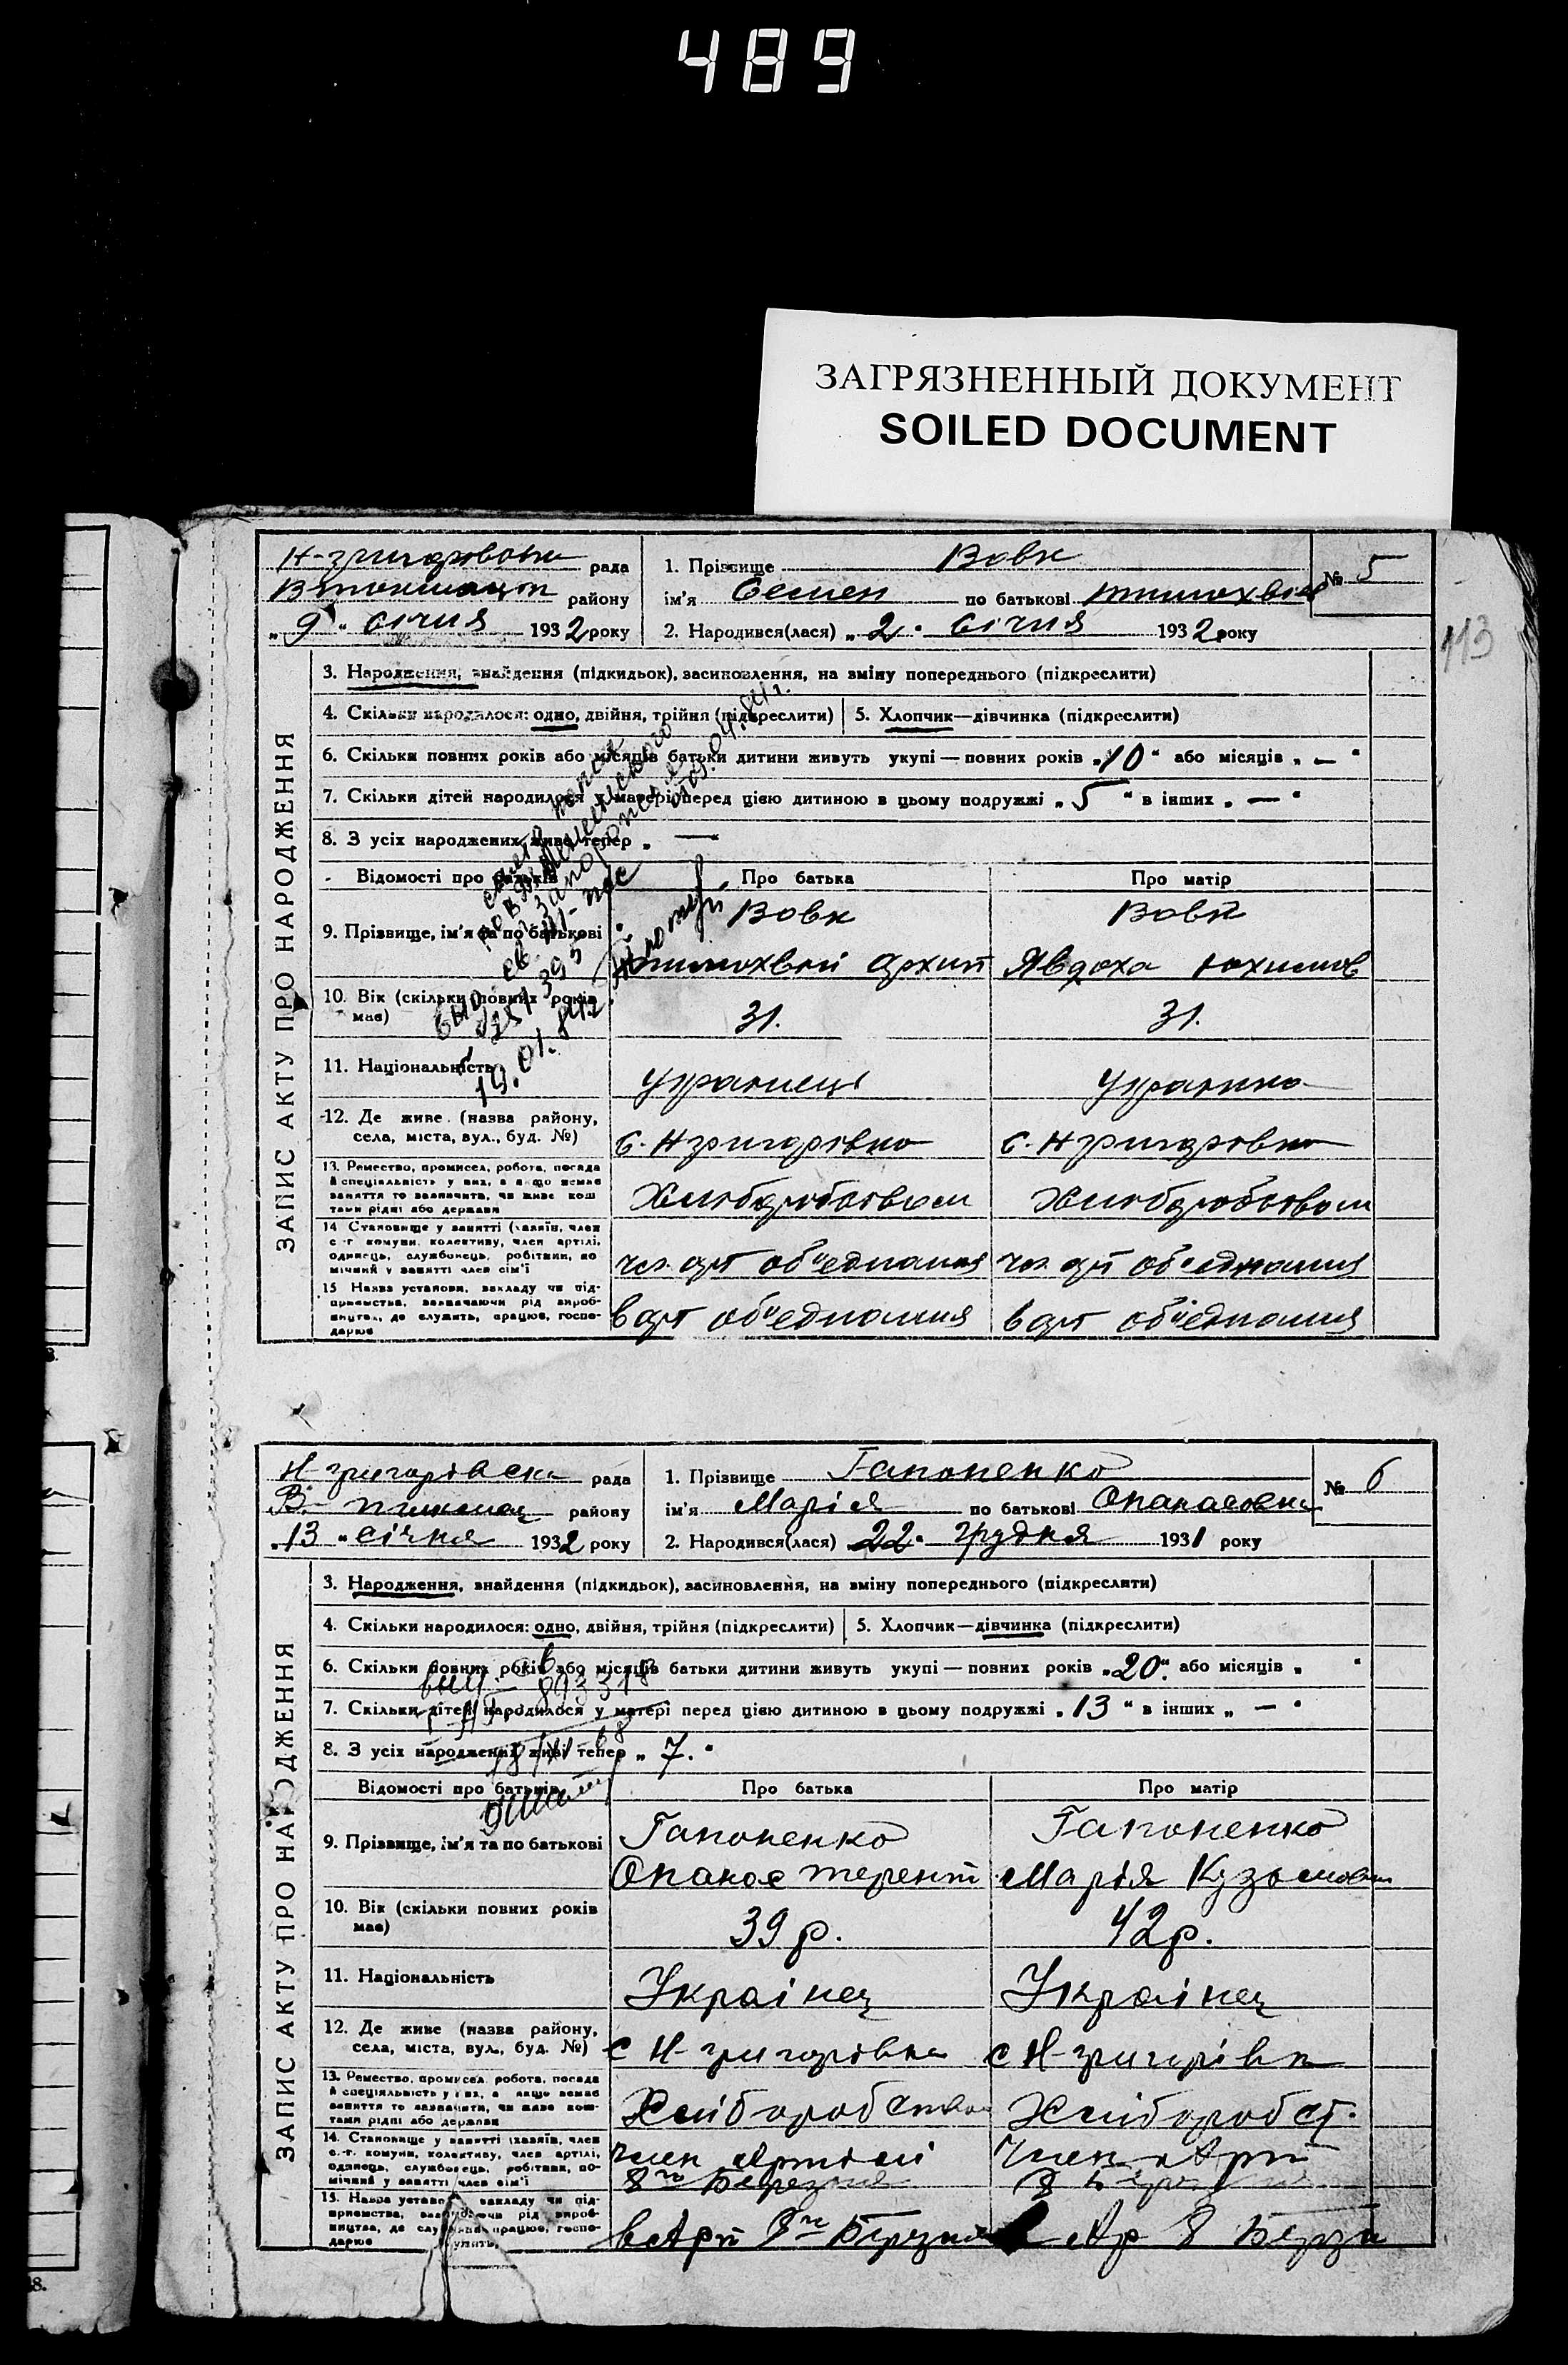 489
ЗАГРЯЗНЕННЫЙ ДОКУМЕНТ
SOILED DOCUMENT
113
ЗАПИС АКТУ ПРО НАРОДЖЕННЯ
рада
району
„9“ січня 1932 року
1. Прізвище Вовк
№ 5
ім'я Семен по батькові тимохвіев
2. Народився(лася) „2“ Січня 1932 року
3. Народження, знайдення (підкидьок), засиновлення, на зміну попереднього (підкреслити)
4. Скільки народилося: одно, двійня, трійня (підкреслити) 5. Хлопчик—дівчинка (підкреслити)
6. Скільки повних років або місяців батьки дитини живуть укупі — повних років „10“ або місяців „—“
7. Скільки дітей народилося у матері перед цією дитиною в цьому подружжі „5“ в інших „—“
8. З усіх народжених живі тепер „ —
19.01.84г.
Відомості про батьків Про батька Про матір
9. Прізвище, ім'я та по батькові Вовк Вовк
тимохвей Архип Явдоха юхимов
10. Вік (скільки повних років має) 31. 31.
11. Національність украинець украинка
12. Де живе (назва району, села, міста, вул., буд. №) с. Н григорівка с. Н григорівка
13. Ремество, промисел, робота, посада й спеціяльність у них, а якщо немає заняття то зазначити, чи живе коштами рідні або держави
14. Становище у занятті (хазяїн, член с.-г. комуни, колективу, член артілі, одинець, службовець, робітник, помічний у занятті член сім'ї
чл. арт об'еднання чл. арт об'еднання
15. Назва установи, закладу чи підприємства, зазначаючи рід виробництва, де служить, працює, господарює
в арт об'еднания в арт об'еднания
ЗАПИС АКТУ ПРО НАРОДЖЕННЯ
Н-григорівська рада
району
„13“ січня 1932 року
1. Прізвище Гапоненко
№ 6
ім'я Марія по батькові Опанасовна
2. Народився(лася) „22“ грудня 1931 року
3. Народження, знайдення (підкидьок), засиновлення, на зміну попереднього (підкреслити)
4. Скільки народилося: одно, двійня, трійня (підкреслити) 5. Хлопчик—дівчинка (підкреслити)
6. Скільки повних років або місяців батьки дитини живуть укупі — повних років „20“ або місяців „ “
7. Скільки дітей народилося у матері перед цією дитиною в цьому подружжі „13“ в інших „—“
8. З усіх народжених живі тепер „7.“
Відомості про батьків Про батька Про матір
9. Прізвище, ім'я та по батькові Гапоненко Гапоненко
Опанас терент Марія Кузьмовн
10. Вік (скільки повних років має) 39 р. 42 р.
11. Національність Українец Українец
12. Де живе (назва району, села, міста, вул., буд. №) с Н-григорівка с Н-григорівк
13. Ремество, промисел, робота, посада й спеціяльність у них, а якщо немає заняття то зазначити, чи живе коштами рідні або держави
Хліборобство Хлібороб ст.
14. Становище у занятті (хазяїн, член с.-г. комуни, колективу, член артілі, одинець, службовець, робітник, помічний у занятті член сім'ї
член Артілі Член Арт
8го Березня
15. Назва установи, закладу чи підприємства, зазначаючи рід виробництва, де служить, працює, господарює
в Арт 8го Берзня Ар 8 Берзн